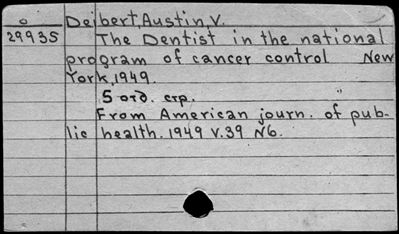 o Deibert, Austin, V.
29935 The Dentist in the national
program of cancer control New
York, 1949.
5 ord. стр.
From American journ. of pub-
lic health. 1949 V.39 N6.